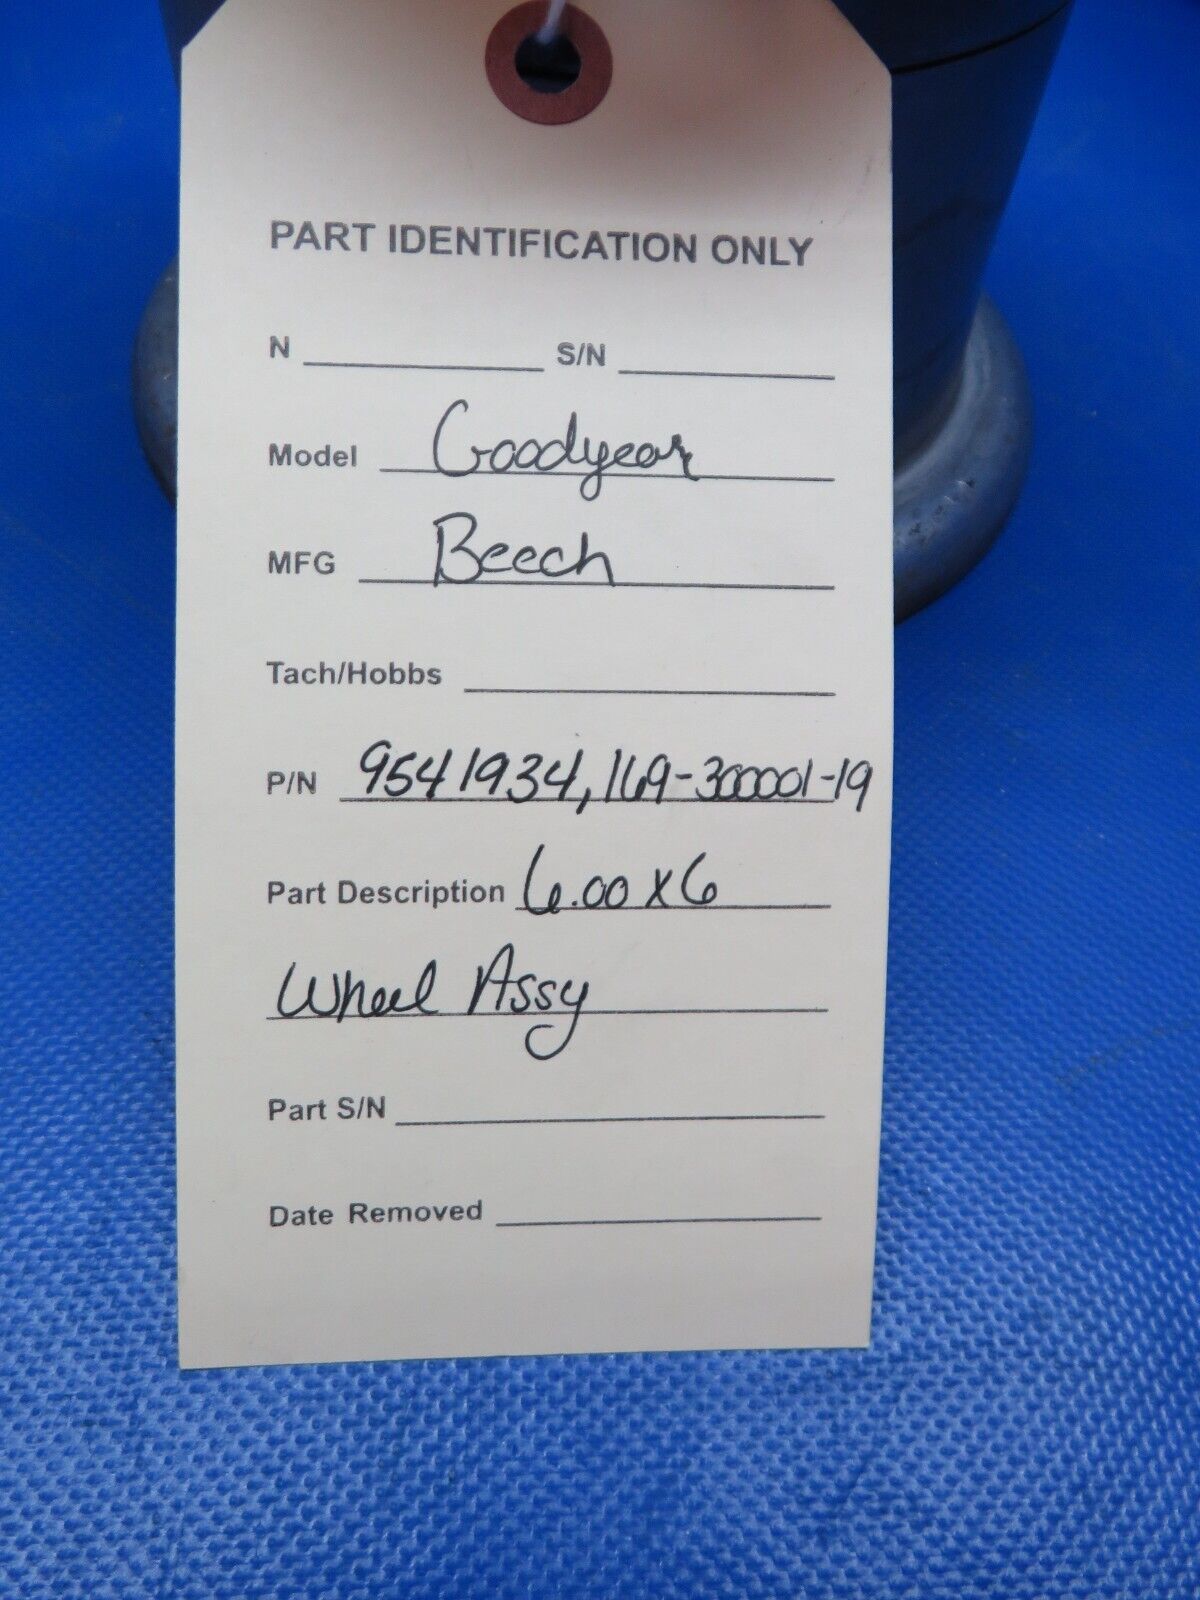 PART IDENTIFICATION ONLY
N S/N
Model Goodyear
MFG Beech
Tach/Hobbs
P/N 9541934, 169-300001-19
Part Description 6.00 X 6
Wheel Assy
Part S/N
Date Removed